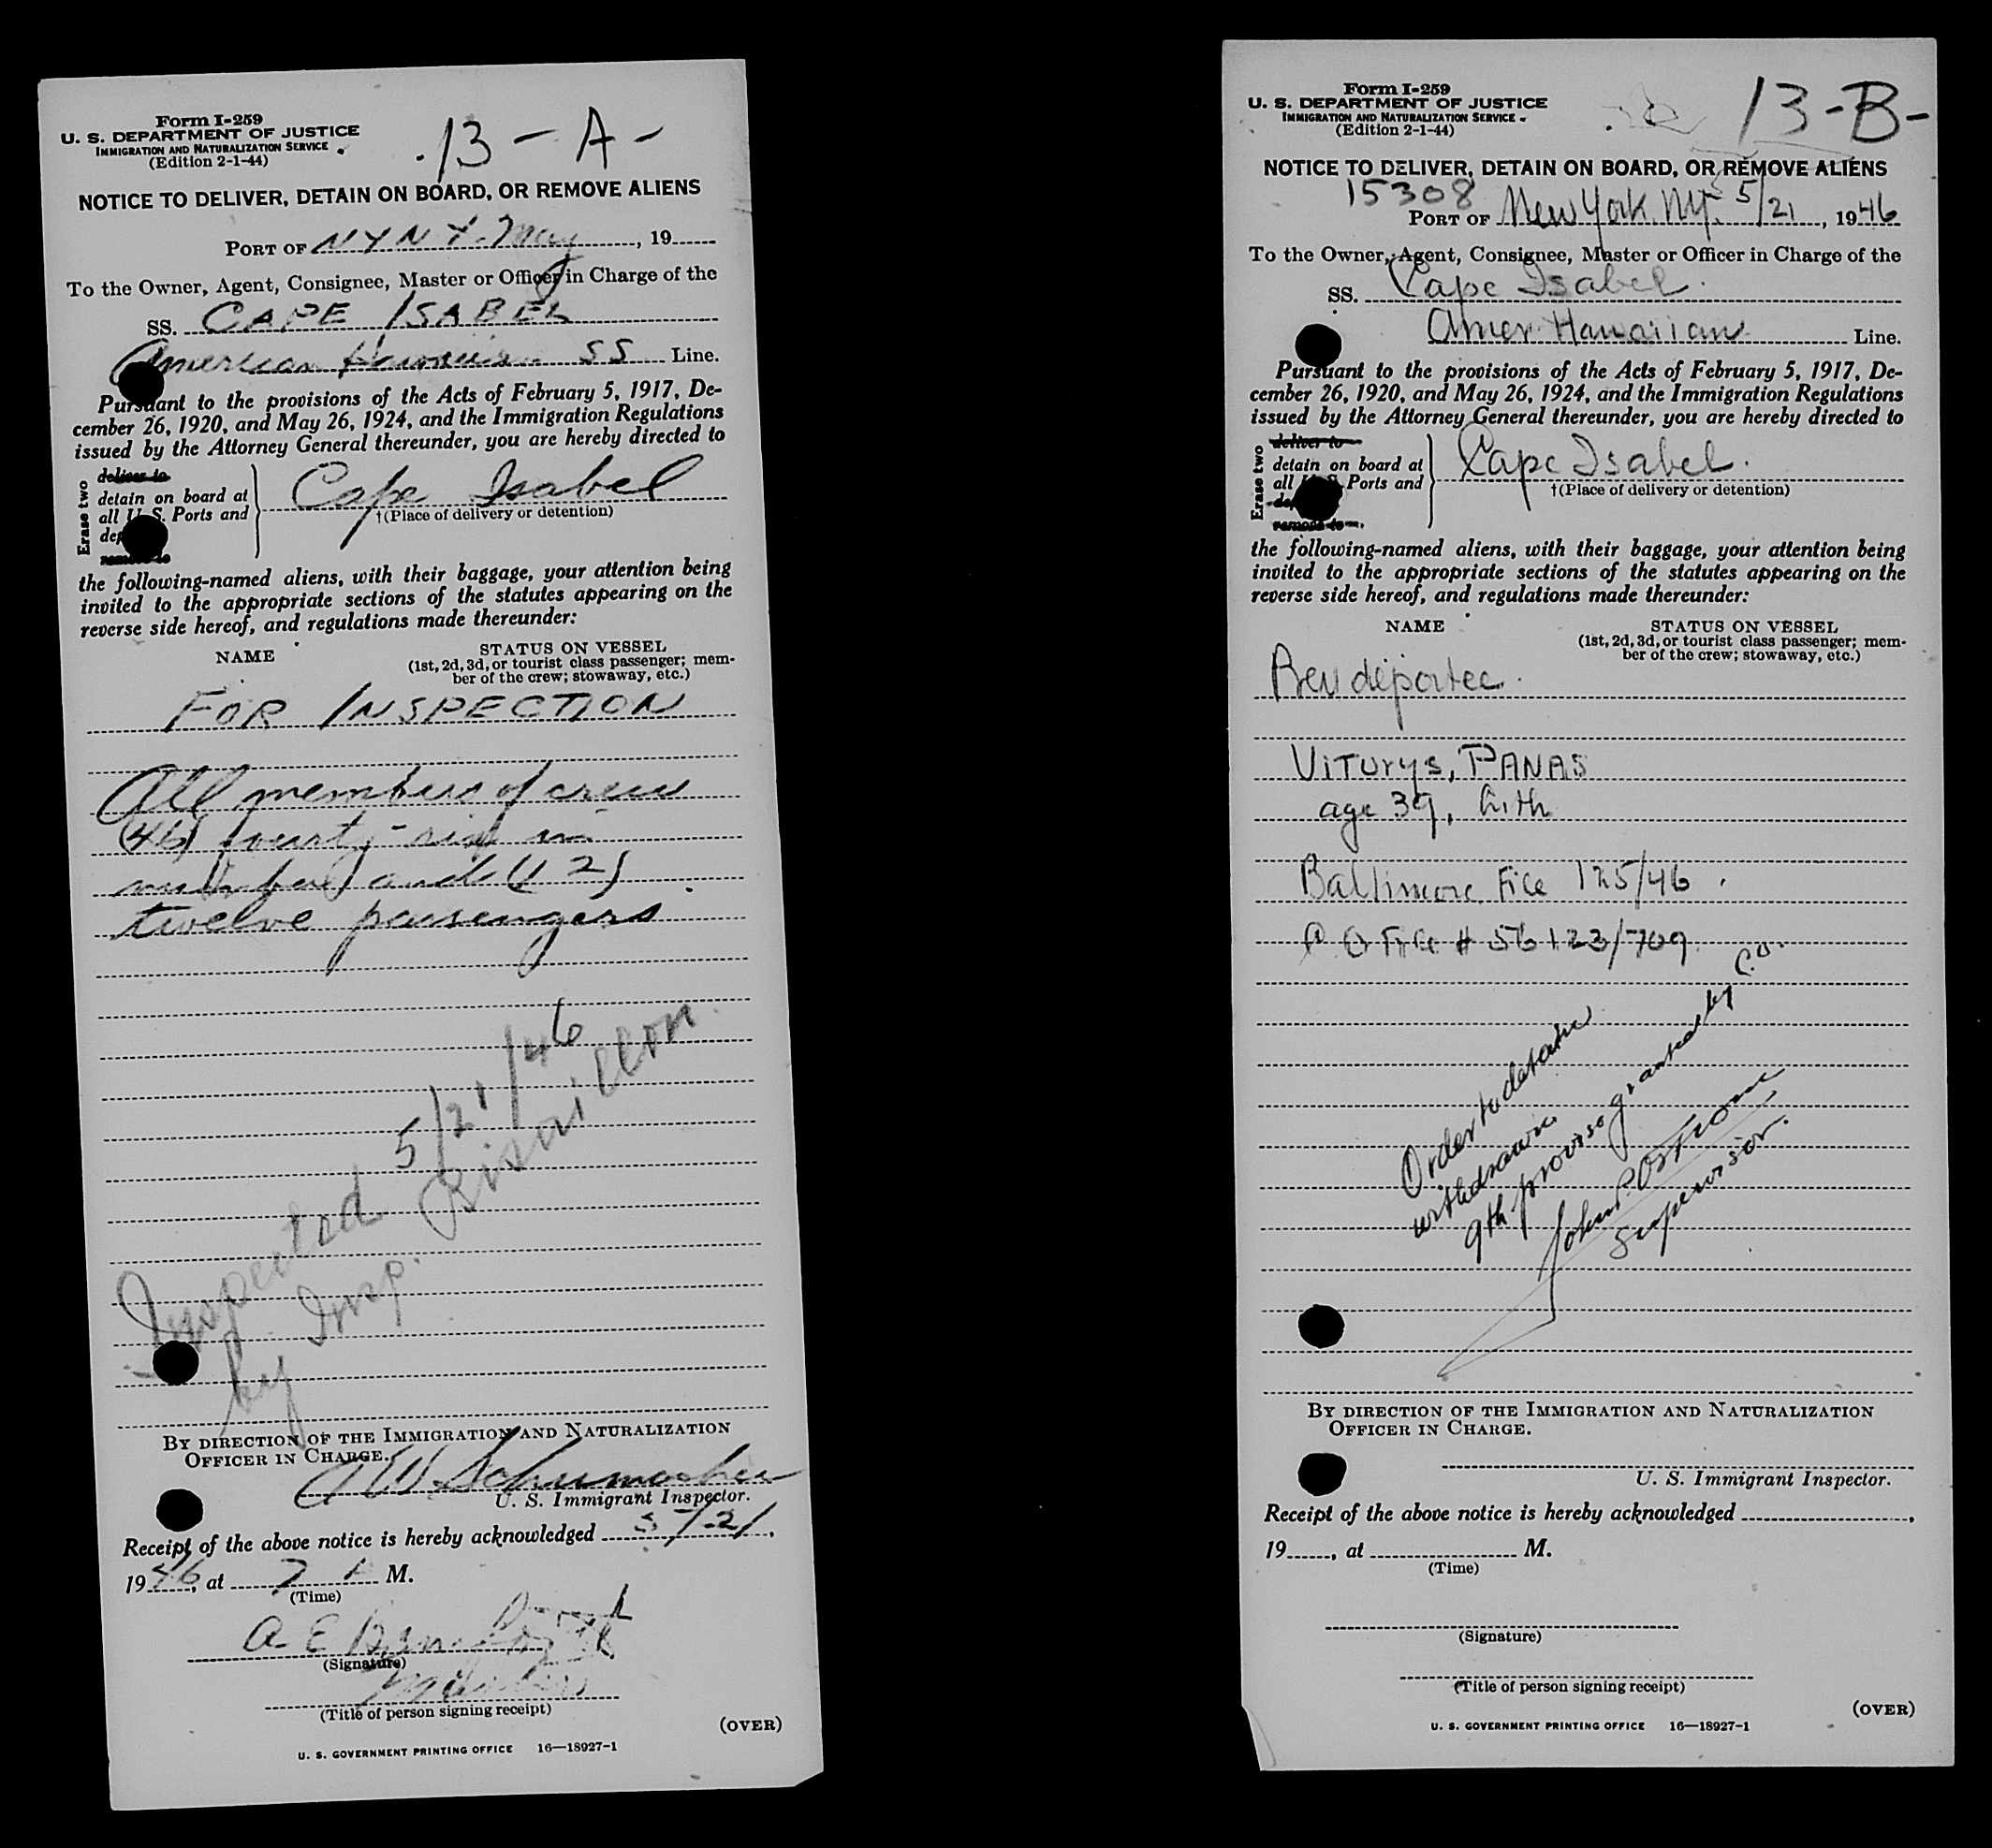 Form I-259
U. S. DEPARTMENT OF JUSTICE
IMMIGRATION AND NATURALIZATION SERVICE
(Edition 2-1-44)
13 - A -
NOTICE TO DELIVER, DETAIN ON BOARD, OR REMOVE ALIENS
PORT OF N Y N Y. May, 19
To the Owner, Agent, Consignee, Master or Officer in Charge of the
SS. CAPE ISABEL
American Hawaiian SS Line.
Pursuant to the provisions of the Acts of February 5, 1917, De-
cember 26, 1920, and May 26, 1924, and the Immigration Regulations
issued by the Attorney General thereunder, you are hereby directed to
Erase two
deliver to
detain on board at
all U. S. Ports and
remove to
Cape Isabel
†(Place of delivery or detention)
the following-named aliens, with their baggage, your attention being
invited to the appropriate sections of the statutes appearing on the
reverse side hereof, and regulations made thereunder:
NAME
STATUS ON VESSEL
(1st, 2d, 3d, or tourist class passenger; mem-
ber of the crew; stowaway, etc.)
FOR INSPECTION
All members of crew
(46) fourty-six in
number and (12)
twelve passengers
Inspected 5/21/46
by Insp.
BY DIRECTION OF THE IMMIGRATION AND NATURALIZATION
OFFICER IN CHARGE.
A W Schumacher
U. S. Immigrant Inspector.
Receipt of the above notice is hereby acknowledged 5/21,
1946, at 7 M.
(Time)
A E
(Signature)
(Title of person signing receipt)
(OVER)
U. S. GOVERNMENT PRINTING OFFICE 16—18927-1
Form I-259
U. S. DEPARTMENT OF JUSTICE
IMMIGRATION AND NATURALIZATION SERVICE
(Edition 2-1-44)
13-B-
NOTICE TO DELIVER, DETAIN ON BOARD, OR REMOVE ALIENS
15308
PORT OF New York, NY. 5/21, 1946
To the Owner, Agent, Consignee, Master or Officer in Charge of the
SS. Cape Isabel.
Amer Hawaiian Line.
Pursuant to the provisions of the Acts of February 5, 1917, De-
cember 26, 1920, and May 26, 1924, and the Immigration Regulations
issued by the Attorney General thereunder, you are hereby directed to
Erase two
deliver to
detain on board at
all U. S. Ports and
remove to
Cape Isabel.
†(Place of delivery or detention)
the following-named aliens, with their baggage, your attention being
invited to the appropriate sections of the statutes appearing on the
reverse side hereof, and regulations made thereunder:
NAME
STATUS ON VESSEL
(1st, 2d, 3d, or tourist class passenger; mem-
ber of the crew; stowaway, etc.)
deportee.
ViTurys, PANAS
age 39, Lith
Baltimore File 125/46.
C O File # 56123/709
Order to detain
withdrawn
9th proviso granted by C.O.
John P.
Supervisor.
BY DIRECTION OF THE IMMIGRATION AND NATURALIZATION
OFFICER IN CHARGE.
U. S. Immigrant Inspector.
Receipt of the above notice is hereby acknowledged ,
19, at M.
(Time)
(Signature)
(Title of person signing receipt)
(OVER)
U. S. GOVERNMENT PRINTING OFFICE 16—18927-1